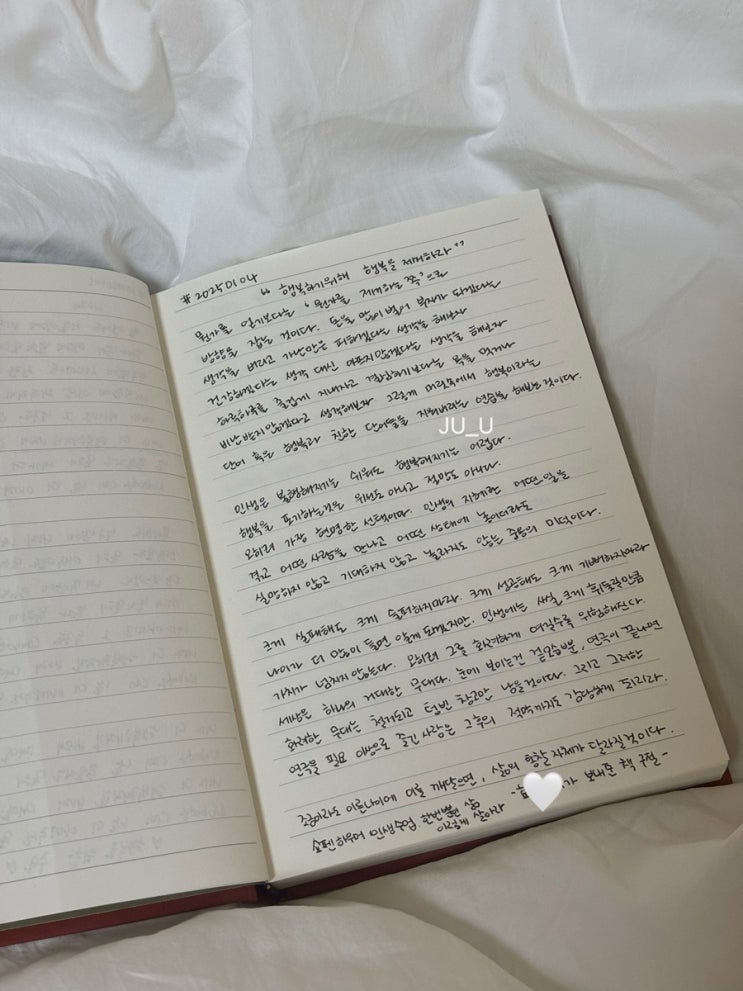 # 2025 01 04
“ 행복하기위해 행복을 제거하라”
뭔가를 얻기보다는 ‘뭔가를 제거하는 쪽’으로
방향을 잡는 것이다. 돈을 많이 벌어 부자가 되겠다는
생각을 버리고 가난만은 피하겠다는 생각을 해보자
건강하겠다는 생각 대신 아프지 않겠다는 생각을 해보자
하루하루를 즐겁게 지내자고 결심하기보다는 욕을 먹거나
비난받지 않겠다고 생각해보자 그렇게 머릿속에서 행복이라는
단어 혹은 행복과 친한 단어들을 지워버리는 연습을 해보는 것이다.
JU_U
인생은 불행해지기는 쉬워도 행복해지기는 어렵다.
행복을 포기하는것은 위선도 아니고 절망도 아니다.
오히려 가장 현명한 선택이다. 인생의 자체란 어떤 일을
겪고 어떤 사람을 만나고 어떤 상태에 놓이더라도
실망하지 않고 기대하지 않고 놀라지도 않는 중용의 미덕이다.
크게 실패해도 크게 슬퍼하지마라. 크게 성공해도 크게 기뻐하지마라
나이가 더 많이 들면 알게 되겠지만. 인생에는 사실 크게 휘둘릴만큼
가치가 넘치지 않는다. 오히려 그를 화려하게 여길수록 위험해진다.
세상은 하나의 거대한 무대다. 눈에 보이는건 겉모습뿐, 연극이 끝나면
화려한 무대는 철거되고 텅빈 창고만 남을것이다. 그리고 그러한
연극을 필요 이상으로 즐긴 사람은 그후의 적막까지도 감당하게 되리라.
조금이라도 이른나이에 이를 깨달으면, 삶의 향방 자체가 달라질 것이다.
쇼펜하우어 인생수업 한번뿐인 삶
이렇게 살아라 - 가 보내준 책 구절 -